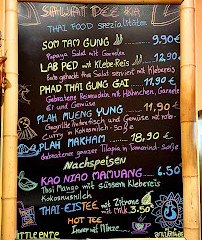 SAWAH DEE KA
THAI FOOD SPEZIALITÄTEN
SOM TAM GUNG 9,90€
Papaya Salat mit Garnele
LAB PED mit Klebe-Reis 12,90€
Ente gehackt Salat serviert mit Klebereis
PHAD THAI GUNG GAI 11,90€
Gebratene Reisnudeln mit Hühnchen, Garnele
Ei und Gemüse
PLAH MUENG YUNG 11,90
Tintenfisch und Gemüse mit roter
Curry in Kokosmilch-Soße
PLAH MAKHAM 18,90€
Gebratener ganzer Tilapia in Tamarind-Soße
Nachspeisen
KAO NIAO MAMUANG 6.50
Thai Mango mit süssem Klebereis
Kokosnussmilch
THAI-EISTEE mit Zitrone
mit Milk 3.50
HOT TEE
Immer mit Minze
LITTLE ENTE